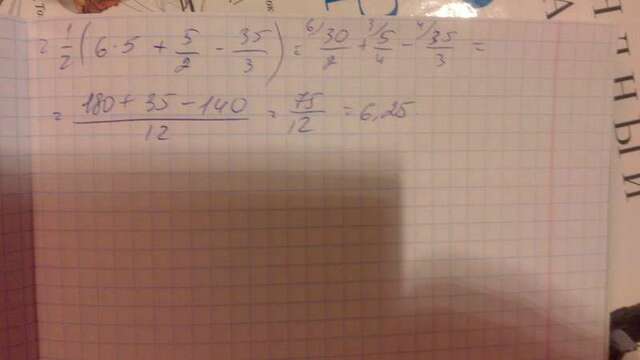 = 1/2 (6·5 + 5/2 - 35/3) = 6/ 30/2 + 3/ 5/4 - 4/ 35/3 =
= (180 + 35 - 140)/12 = 75/12 = 6,25